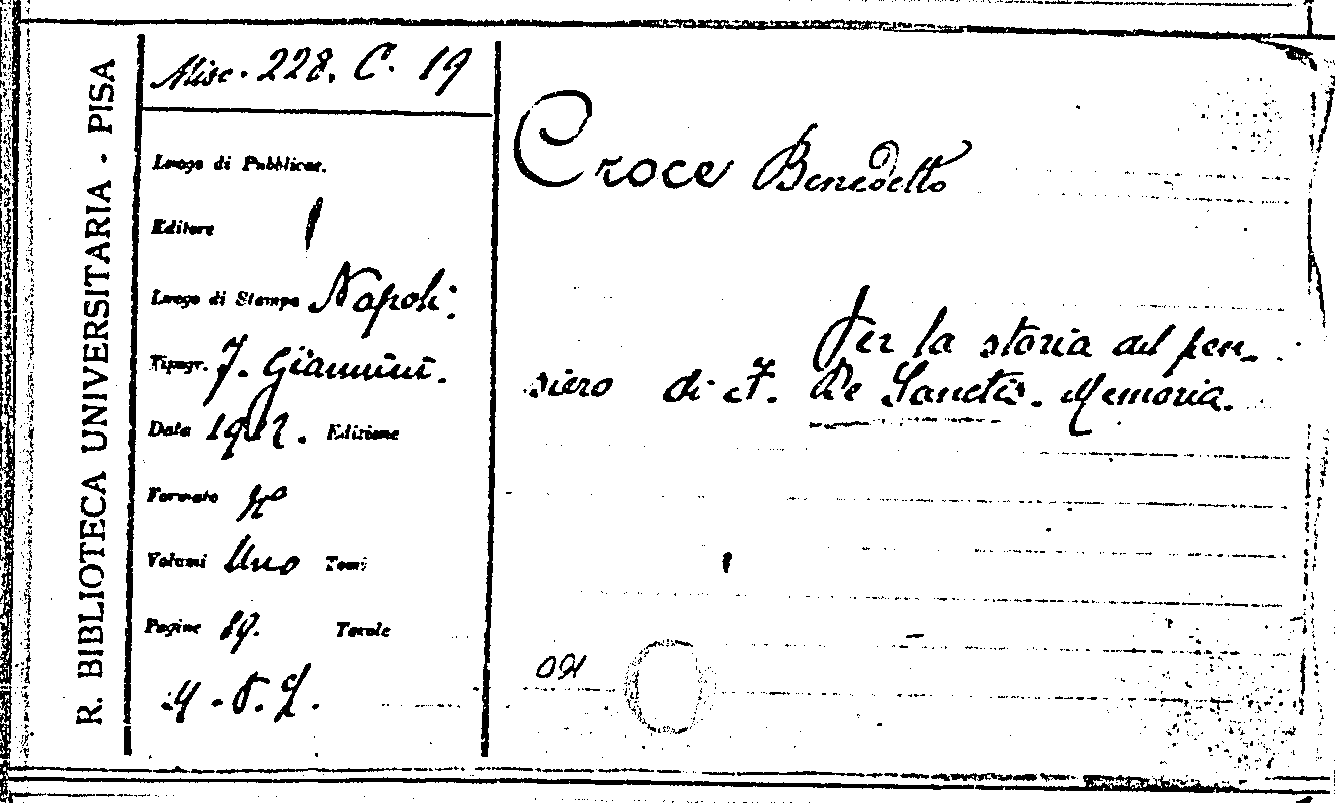 R. BIBLIOTECA UNIVERSITARIA - PISA
Misc. 228. C. 19
Luogo di Pubblicaz.
Editore
Luogo di Stampa Napoli.
Tipogr. F. Giannini.
Data 1912. Edizione
Formato
Volumi Uno Tomi
Pagine 89. Tavole
Croce Benedetto
Per la storia del pen-
siero di F. De Sanctis. Memoria.